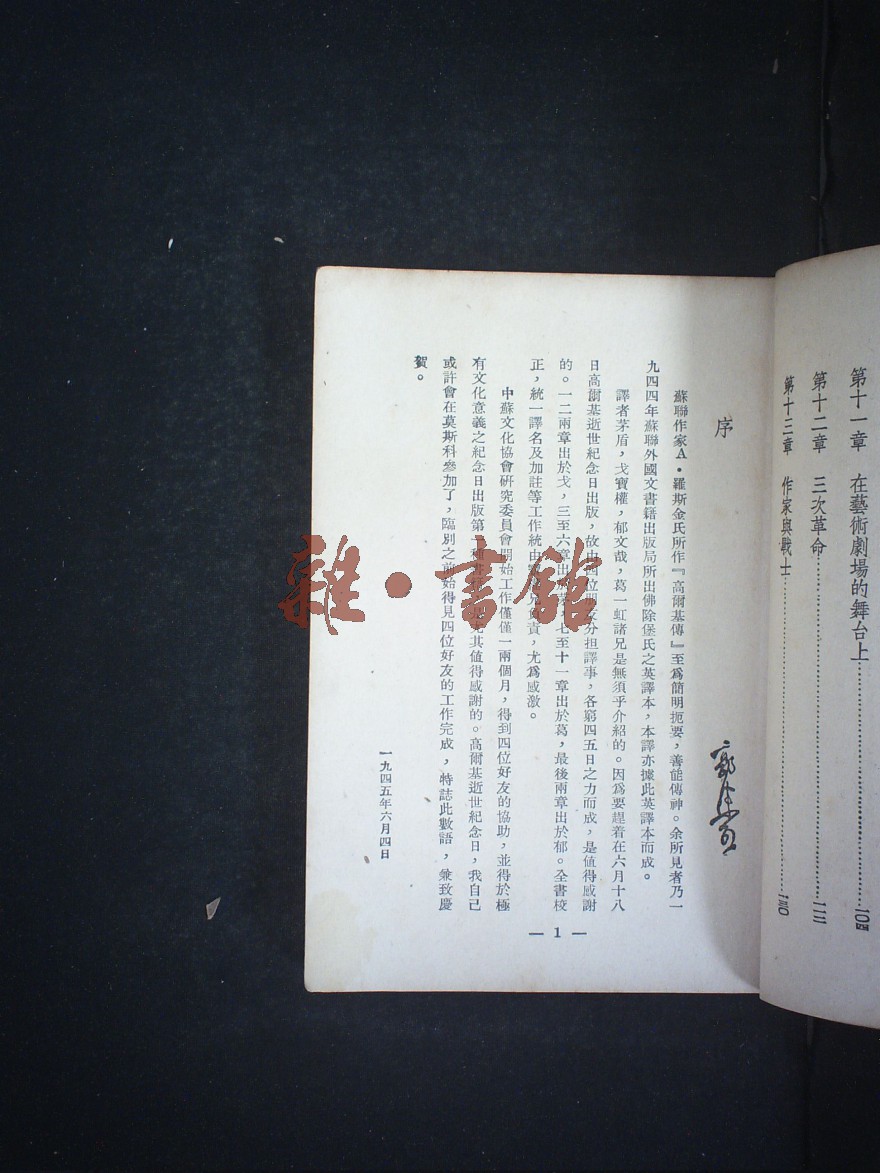 第十一章　在藝術劇場的舞台上……一〇四
第十二章　三次革命……一二二
第十三章　作家與戰士……一三〇
序
蘇聯作家A·羅斯金氏所作『高爾基傳』至爲簡明扼要，善能傳神。余所見者乃一
九四四年蘇聯外國文書籍出版局所出佛除堡氏之英譯本，本譯亦據此英譯本而成。
譯者茅盾，戈寶權，郁文哉，葛一虹諸兄是無須乎介紹的。因爲要趕着在六月十八
日高爾基逝世紀念日出版，故由四位朋友分担譯事，各窮四五日之力而成，是值得感謝
的。一二兩章出於戈，三至六章出於茅，七至十一章出於葛，最後兩章出於郁。全書校
正，統一譯名及加註等工作統由寶權兄負責，尤爲感激。
中蘇文化協會研究委員會開始工作僅僅一兩個月，得到四位好友的協助，並得於極
有文化意義之紀念日出版第一種書，尤其值得感謝的。高爾基逝世紀念日，我自己
或許會在莫斯科參加了，臨別之前始得見四位好友的工作完成，特誌此數語，兼致慶
賀。
一九四五年六月四日
— 1 —
雜·書館